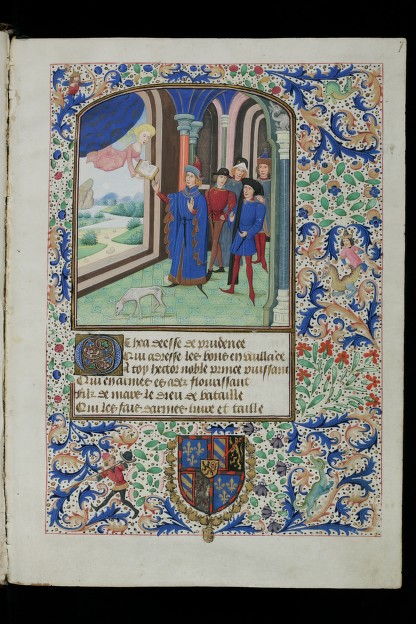 Othea deesse de prudence
Qui adresse les bons en vaillāce
A toy hector noble prince puissant
Qui en armes es adez flouissant
Filz de mars le dieu de bataille
Qui les fais darmes liure et taille